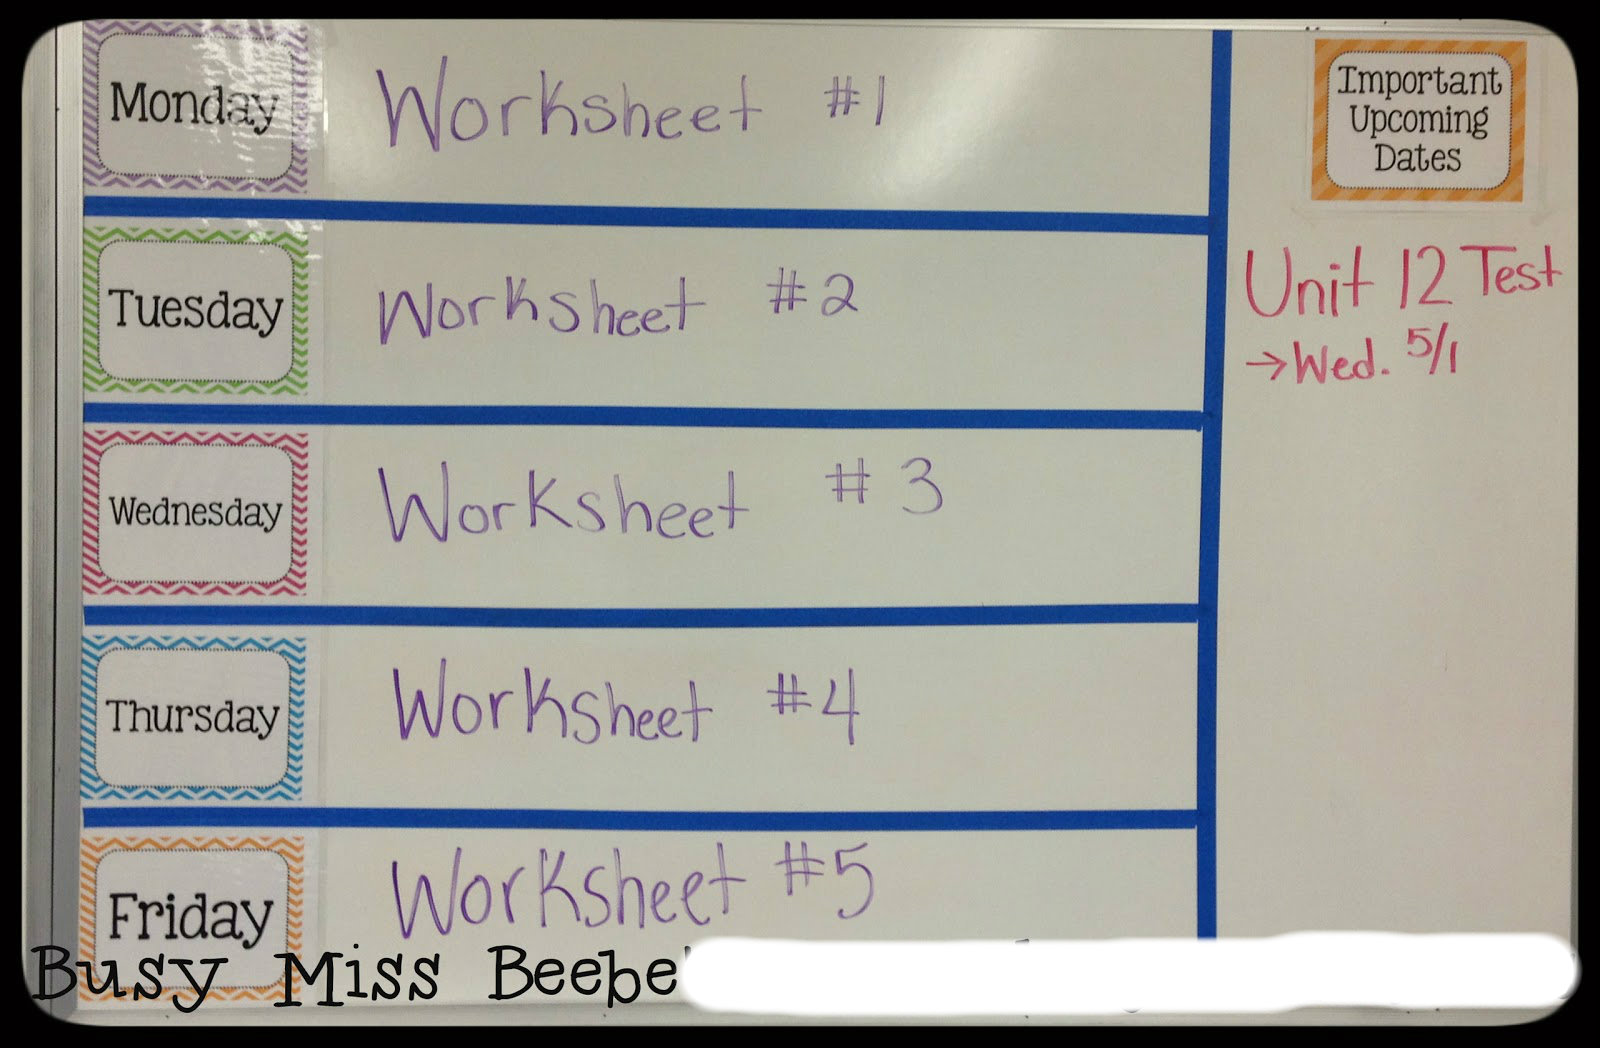 Monday Worksheet #1
Tuesday Worksheet #2
Wednesday Worksheet #3
Thursday Worksheet #4
Friday Worksheet #5
Important
Upcoming
Dates
Unit 12 Test
→Wed. 5/1
Busy Miss